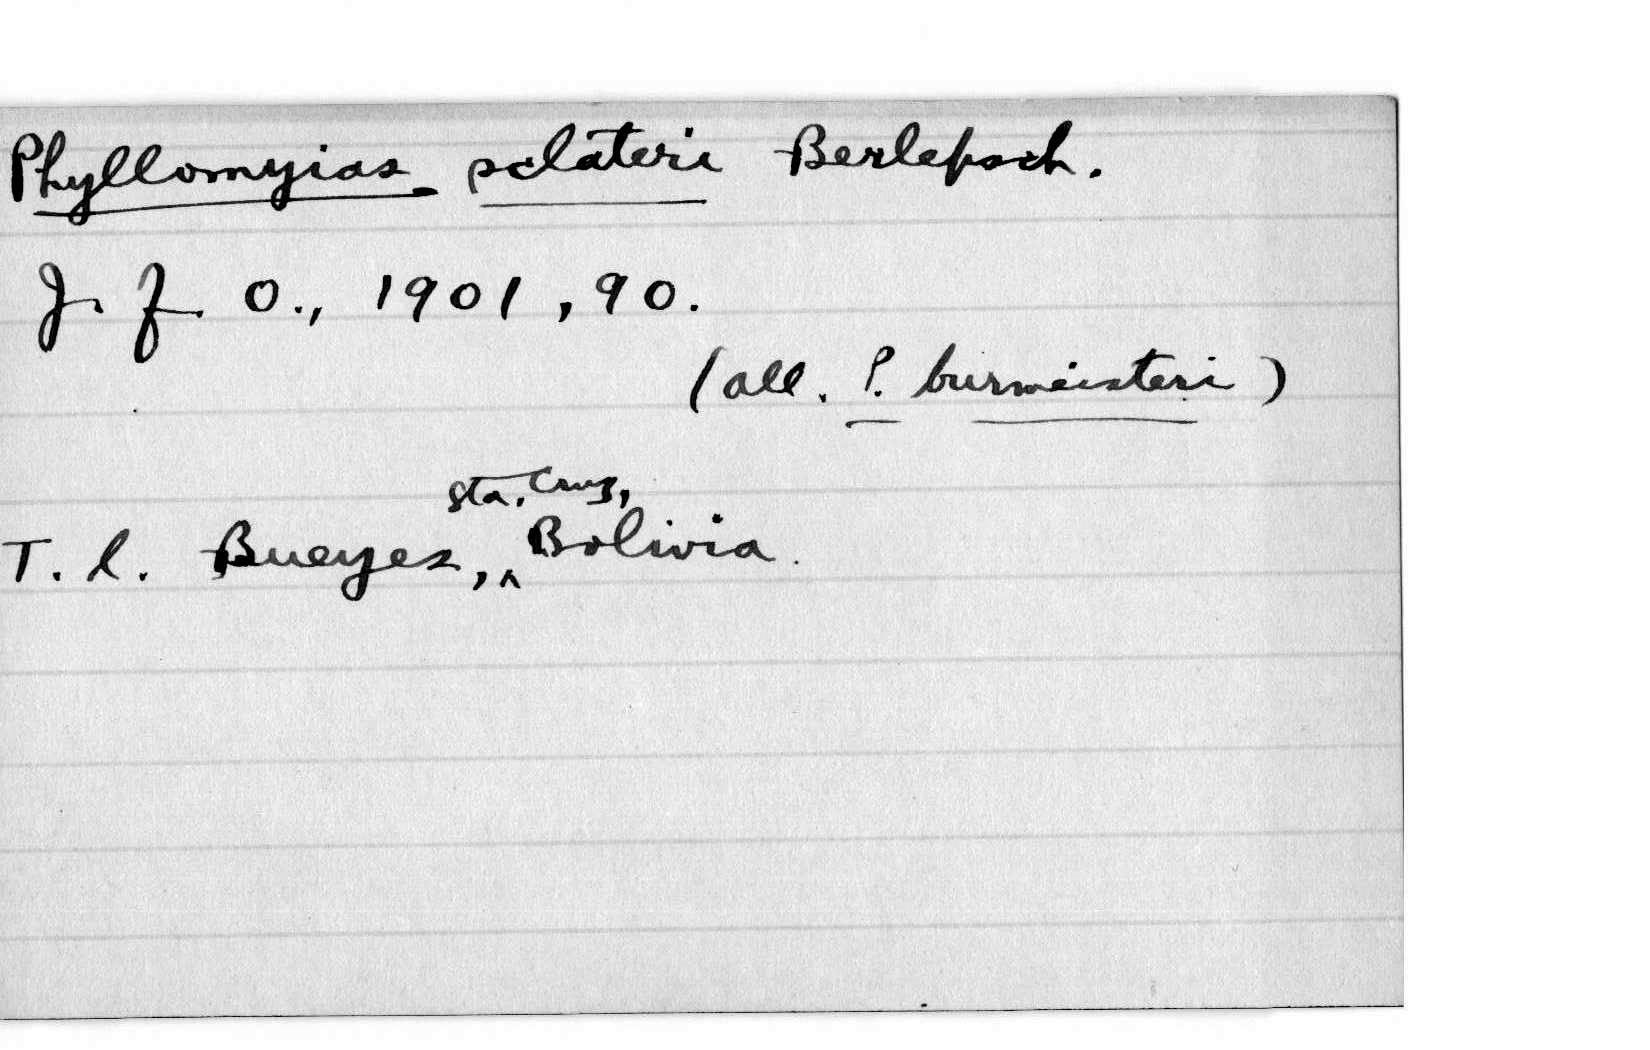 Phyllomyias sclateri Berlepsch.
J. f. O., 1901, 90.
(all. P. burmeisteri)
Sta. Cruz,
T. l. Bueyes, ^ Bolivia.